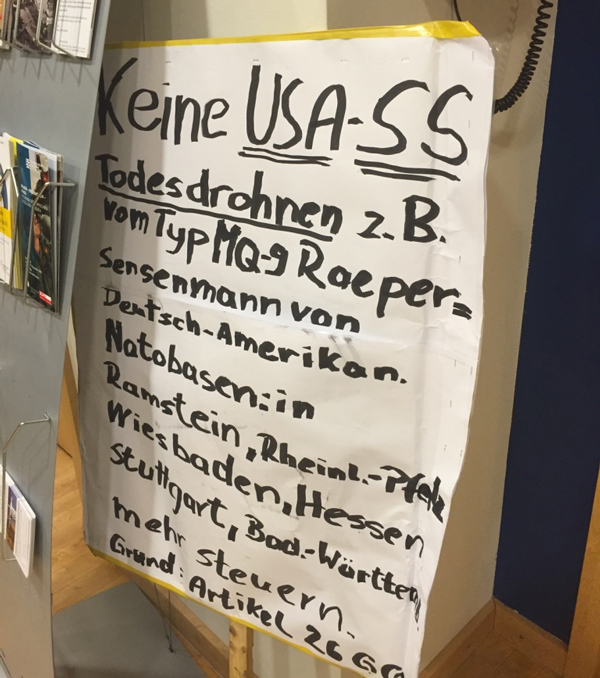 Keine USA-SS
Todesdrohnen z.B.
vom Typ MQ-9 Raeper=
Sensenmann von
Deutsch-Amerikan.
Natobasen: in
Ramstein, Rheinl.-Pfalz
Wiesbaden, Hessen
Stuttgart, Bad.-Württem
mehr steuern.
Grund: Artikel 26 GG